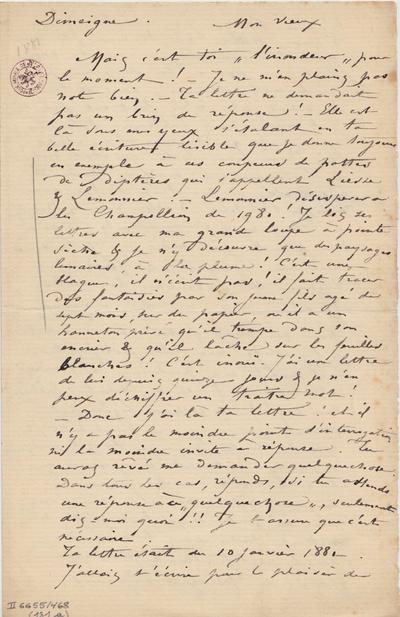 Dimeigne. Mon vieux
1881
Mais c'est toi „ l'inondeur „ pour
le moment ! – Je ne m'en plains pas
note bien. – Ta lettre ne demandait
pas un brin de réponse ! – Elle est
là sous mes yeux s'étalant en ta
belle écriture lisible que je donne toujours
en exemple à ces coupeurs de pattes
de diptères qui s'appellent Liesse
& Lemonnier : – Lemonnier désespérera
les Champollion de 1980 ! Je lis ses
lettres avec ma grande loupe à pointe
sèche & je n'y découvre que des paysages
lunaires à la plume ! C'est une
blague, il n'écrit pas, il fait tracer
des fantaisies par son jeune fils agé de
sept mois, sur du papier, ou il a un
hanneton privé qu'il trempe dans son
encrier & qu'il lâche sur les feuilles
blanches ! C'est inouï. J'ai une lettre
de lui depuis quinze jours & je n'en
peux déchiffrer un traître mot !
– Donc j'ai là ta lettre ! et il
n'y a pas le moindre point d'interrogation
ni la moindre invite à réponse. Tu
auras rêvé me demander quelque chose.
Dans tous les cas, réponds, si tu attends
une réponse à „ quelque chose „, seulement
dis-moi quoi !! Je t'assure que c'est
nécessaire.
Ta lettre était du 10 janvier 1881
J'allais t'écrire pour le plaisir de
II 6655/468